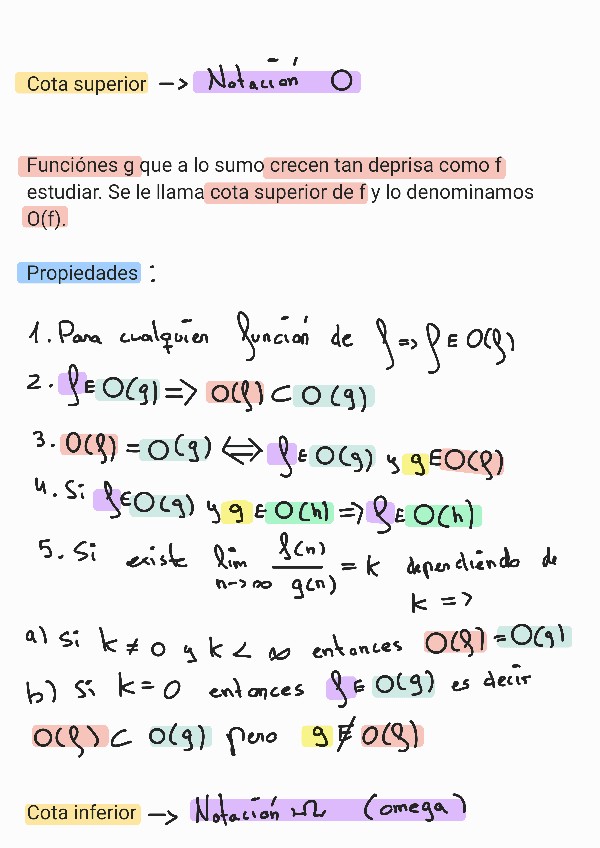 Cota superior -> Notación O
Funciónes g que a lo sumo crecen tan deprisa como f
estudiar. Se le llama cota superior de f y lo denominamos
O(f).
Propiedades :
1. Para cualquier función de f => f ∈ O(f)
2. f ∈ O(g) => O(f) ⊂ O(g)
3. O(f) = O(g) <=> f ∈ O(g) y g ∈ O(f)
4. Si f ∈ O(g) y g ∈ O(h) => f ∈ O(h)
5. Si existe lim n->∞ f(n)/g(n) = k dependiendo de
k =>
a) si k ≠ 0 y k < ∞ entonces O(f) = O(g)
b) si k = 0 entonces f ∈ O(g) es decir
O(f) ⊂ O(g) pero g ∉ O(f)
Cota inferior -> Notación Ω (omega)